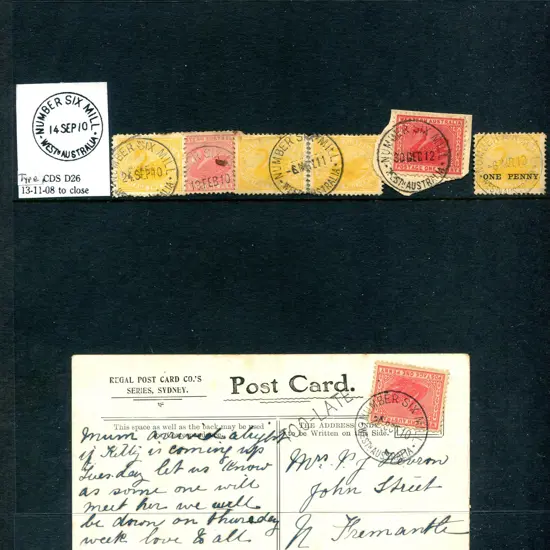 NUMBER SIX MILL
14 SEP 10
WESTN AUSTRALIA
Type CDS D26
13-11-08 to close
NUMBER SIX MILL
24 SEP 10
WESTN AUSTRALIA
13 FEB 10
NUMBER SIX MILL
WESTN AUSTRALIA
NUMBER SIX MILL
30 DEC 12
WESTN AUSTRALIA
POSTAGE ONE PENNY
ONE PENNY
REGAL POST CARD CO.'S
SERIES, SYDNEY.
Post Card.
TOO LATE
NUMBER SIX MILL
This space as well as the back may be used
THE ADDRESS ONLY
to be Written on this Side.
Mum arrived alright
Kitty is coming up
Tuesday let us know
as some one will
meet her we will
be down on thursday
week love to all
Mrs P. J.
John Street
N Fremantle